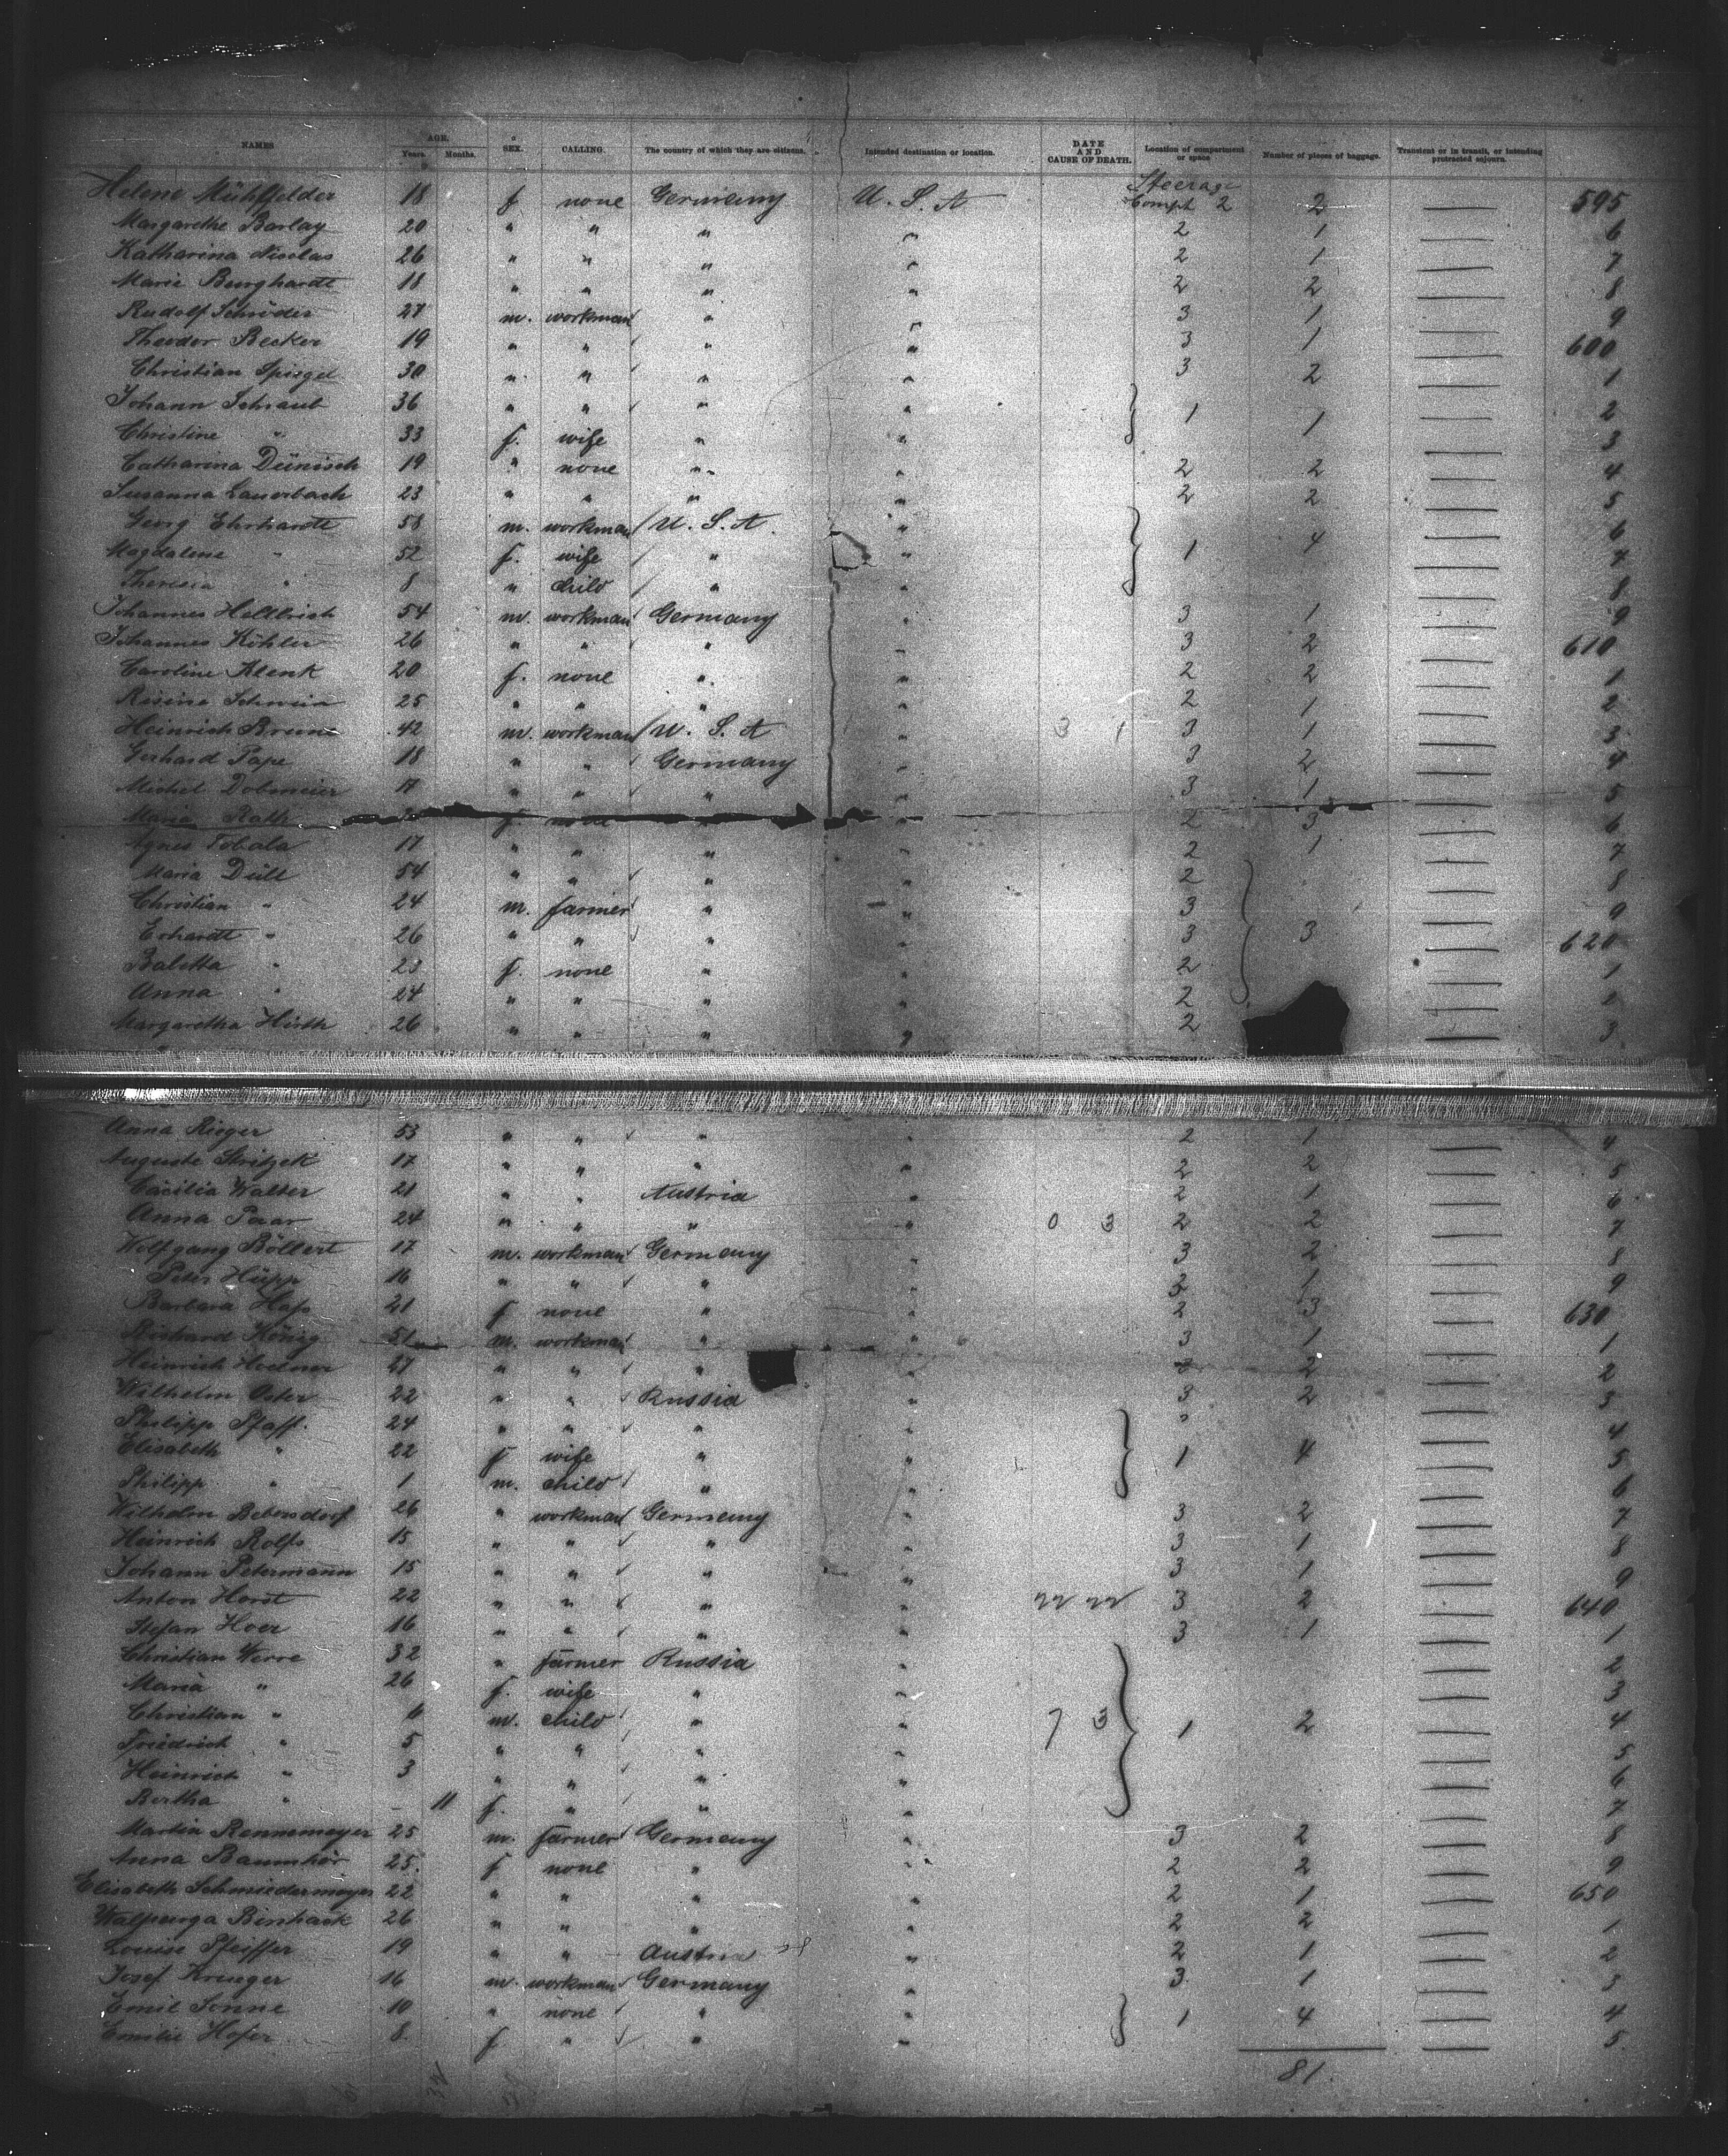 NAMES AGE. Years. Months. SEX. CALLING. The country of which they are citizens. Intended destination or location. DATE AND CAUSE OF DEATH. Location of compartment or space Number of pieces of baggage. Transient or in transit, or intending protracted sojourn.
Steerage
Helene Mühlfelder 18 f none Germany U. S. A Compt 2 2 — 595
Margarethe Barlay 20 " " " " 2 1 — 6
Katharina Nicolas 26 " " " " 2 1 — 7
Marie Burghardt 18 " " " " 2 2 — 8
Rudolf Schröder 27 m. workman " " 3 1 — 9
Theodor Becker 19 " " " " 3 1 — 600
Christian Spiegel 30 " " " " 3 2 — 1
Johann Schraub 36 " " " " 1 1 — 2
Christine " 33 f. wife " " — 3
Catharina Dünisch 19 " none " " 2 2 — 4
Susanna Lauerbach 23 " " " " 2 2 — 5
Georg Ehrhardt 58 m. workman U. S. A. " — 6
Magdalene " 52 f. wife " " 1 4 — 7
Theresia " 8 " child " " — 8
Johannes Hellbrich 54 m. workman Germany 3 1 — 9
Johannes Köhler 26 " " " " 3 2 — 610
Caroline Klenk 20 f. none " " 2 2 — 1
Rosine 25 " " " 2 1 — 2
Heinrich Bruns 42 m. workman U. S. A " 3 1 3 1 — 3
Gerhard Pape 18 " " Germany " 3 2 — 4
Michel Dobmeier 17 " " " " 3 1 — 5
Maria Rath f. none " " 2 3 — 6
Agnes Tobala 17 " " " 2 1 — 7
Maria Düll 54 " " " " 2 — 8
Christian " 24 m. farmer " " 3 — 9
Erhardt " 26 " " " " 3 3 — 620
Babetta " 23 f. none " " 2 — 1
Anna " 24 " " " " 2 — 2
Margaretha Hirth 26 " " " " 2 — 3
Anna Rieger 53 " " " " 2 1 — 4
Auguste 17 " " " " 2 2 — 5
Cäcilia Walter 21 " " Austria " 2 1 — 6
Anna Paar 24 " " " " 0 3 2 2 — 7
Wolfgang Böllert 17 m. workman Germany 3 2 — 8
Peter Hüpp 16 " " " " 3 1 — 9
Barbara Hass 21 f none " " 2 3 — 630
Richard König 51 m. workman " " 3 1 — 1
Heinrich 27 " " " " 3 2 — 2
Wilhelm Oster 22 " " Russia " 3 2 — 3
Philipp Pfaff. 24 " " " " — 4
Elisabeth " 22 f wife " " 1 4 — 5
Philipp " 1 m. child " " — 6
Wilhelm Bebersdorf 26 " workman Germany " 3 2 — 7
Heinrich Rolfs 15 " " " " 3 1 — 8
Johann Petermann 15 " " " " 3 1 — 9
Anton Horst 22 " " " " 3 2 — 640
Stefan Hoer 16 " " " " 3 1 — 1
Christian Werre 32 " farmer Russia " — 2
Maria " 26 f. wife " " — 3
Christian " m. child " " 7 3 1 2 — 4
Friedrich " 5 " " " " — 5
Heinrich " 3 " " " " — 6
Bertha " – 11 f. " " " — 7
Martin Rennemeyer 25 m. farmer Germany " 3 2 — 8
Anna Baumhör 25. f none " " 2 2 — 9
Elisabeth Schmiedermeyer 22 " " " " 2 1 — 650
Walpurga Binhack 26 " " " " 2 2 — 1
Louise Pfeiffer 19 " " Austria " 2 1 — 2
Josef Krueger 16 m. workman Germany " 3 1 — 3
Emil Sonne 10 " none " " 1 4 — 4
Emilie Hofer 8. f " " " — 5
81.